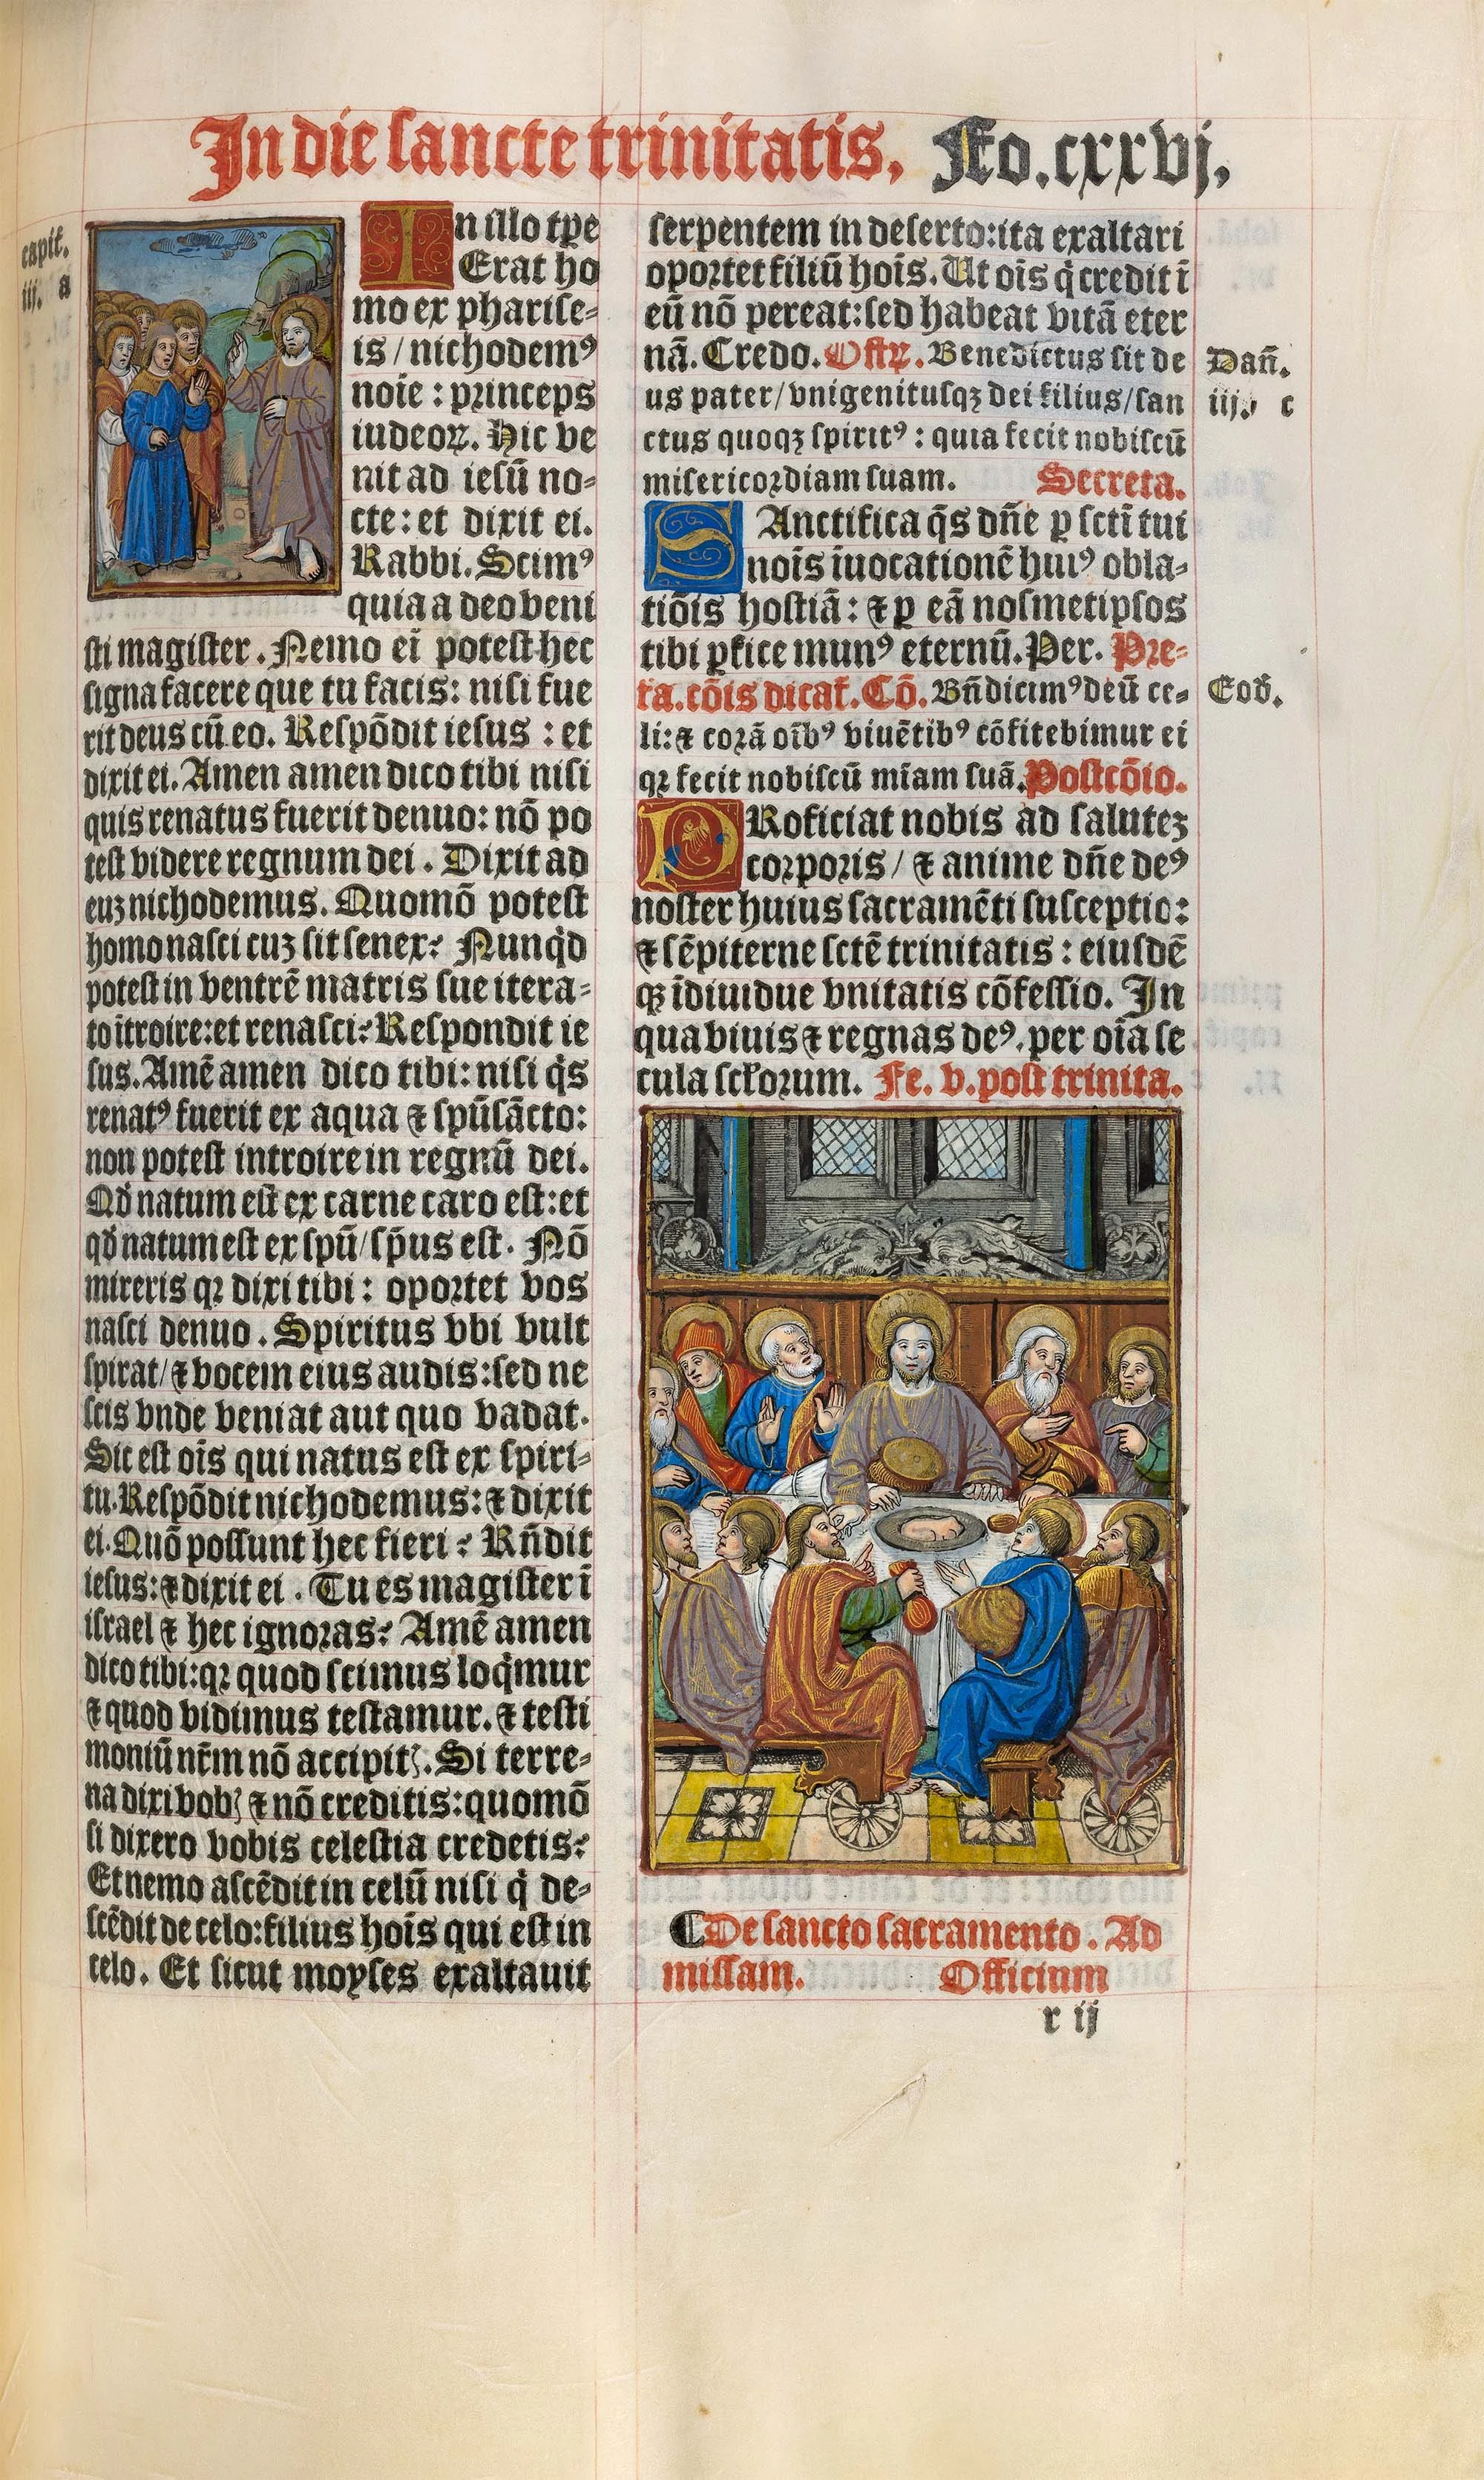 In die sancte trinitatis. Fo. cxxvj.
capit.
iij. a
In illo tp̄e
Erat ho
mo ex pharise-
is / nichodemꝰ
noīe : princeps
iudeoꝝ. Hic ve
nit ad iesū no-
cte : et dixit ei.
Rabbi. Scimꝰ
quia a deo veni
sti magister. Nemo eī potest hec
signa facere que tu facis: nisi fue
rit deus cū eo. Respōdit iesus : et
dixit ei. Amen amen dico tibi nisi
quis renatus fuerit denuo: nō po
test videre regnum dei. Dixit ad
euꝫ nichodemus. Quomō potest
homo nasci cuꝫ sit senex? Nunqͥd
potest in ventrē matris sue itera-
to ītroire: et renasci? Respondit ie
sus. Amē amen dico tibi: nisi qͥs
renatꝰ fuerit ex aqua ⁊ spūsācto:
non potest introire in regnū dei.
Qď natum est ex carne caro est: et
qď natum est ex spū / sp̄us est. Nō
mireris qꝛ dixi tibi : oportet vos
nasci denuo. Spiritus vbi vult
spirat / ⁊ vocem eius audis: sed ne
scis vnde veniat aut quo vadat.
Sic est oīs qui natus est ex spiri-
tu. Respōdit nichodemus: ⁊ dixit
ei. Quō possunt hec fieri? Rn̄dit
iesus: ⁊ dixit ei. Tu es magister ī
israel ⁊ hec ignoras? Amē amen
dico tibi: qꝛ quod scimus loqͥmur
⁊ quod vidimus testamur. ⁊ testi
moniū nr̄m nō accipitꝭ. Si terre-
na dixi vobꝭ ⁊ nō creditis: quomō
si dixero vobis celestia credetis?
Et nemo ascēdit in celū nisi qͥ de-
scēdit de celo: filius hoīs qui est in
celo. Et sicut moyses exaltauit
serpentem in deserto: ita exaltari
oportet filiū hoīs. Ut oīs qͥ credit ī
eū nō pereat: sed habeat vitā eter
nā. Credo. Offꝝ. Benedictus sit de
us pater / vnigenitusqꝫ dei filius / san
ctus quoqꝫ spiritꝰ : quia fecit nobiscū
misericordiam suam. Secreta.
Dañ.
iij. c
SAnctifica q̄s dn̄e ꝑ sctī tui
noīs īuocationē huiꝰ obla-
tiōis hostiā : ⁊ ꝑ eā nosmetipsos
tibi ꝑfice munꝰ eternū. Per. Pre-
fa. cōis dicat̄. Cō. Bn̄dicimꝰ deū ce-
li: ⁊ corā oībꝰ viuētibꝰ cōfitebimur ei
qꝛ fecit nobiscū mīam suā. Postcōio.
Eoď.
PRoficiat nobis ad saluteꝫ
corporis / ⁊ anime dn̄e deꝰ
noster huius sacramēti susceptio:
⁊ sēpiterne sctē trinitatis : eiusdē
qꝫ īdiuidue vnitatis cōfessio. In
qua viuis ⁊ regnas deꝰ. per oīa se
cula sctōrum. Fe. v. post trinita.
De sancto sacramento. Ad
missam. Officium
r ij